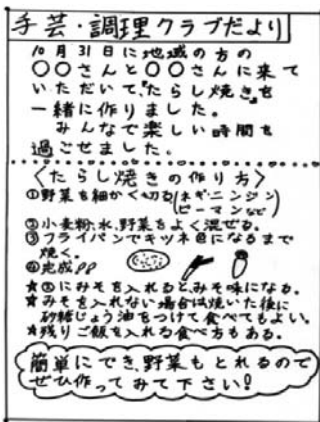 手芸・調理クラブだより
10月31日に地域の方の
○○さんと○○さんに来て
いただいて、『たらし焼き』を
一緒に作りました。
みんなで楽しい時間を
過ごせました。
〈たらし焼きの作り方〉
①野菜を細かく切る(ネギ・ニンジン
ピーマンなど)
②小麦粉、水、野菜をよく混ぜる。
③フライパンでキツネ色になるまで
焼く。
④完成!!
★②にみそを入れると、みそ味になる。
★みそを入れない場合は焼いた後に
砂糖じょう油をつけて食べてもよい。
★残りご飯を入れる食べ方もある。
簡単にでき、野菜もとれるので
ぜひ作ってみて下さい!